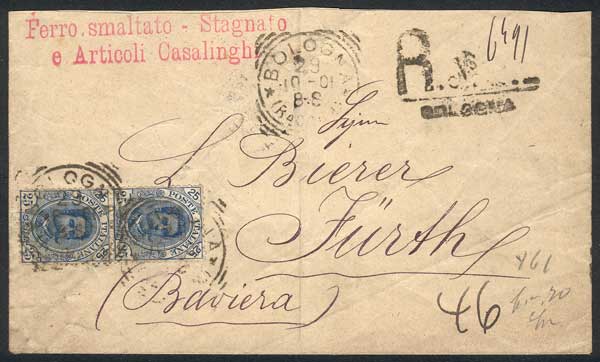 Ferro smaltato - Stagnato
e Articoli Casalinghi
BOLOGNA
29
10-01
8-S
R
6491
BOLOGNA
L. Bierer
Fürth
(Baviera)
46
POSTE ITALIANE
25
POSTE ITALIANE
25